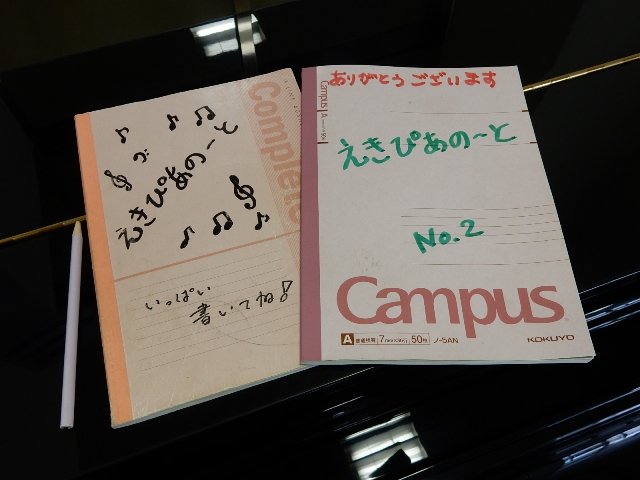 Complete
えきぴあの〜と
いっぱい
書いてね!
ありがとうございます
Campus
えきぴあの〜と
No.2
Campus
A 普通横罫 7mm 50枚 ノ-5AN
KOKUYO